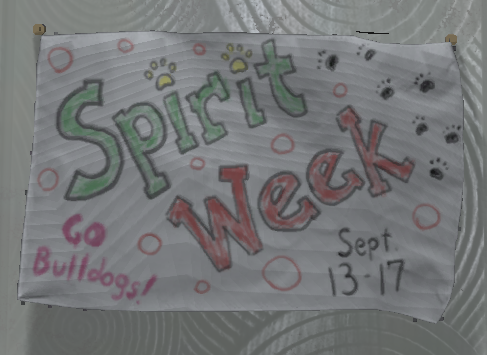 Spirit
Week
Go
Bulldogs!
Sept.
13-17